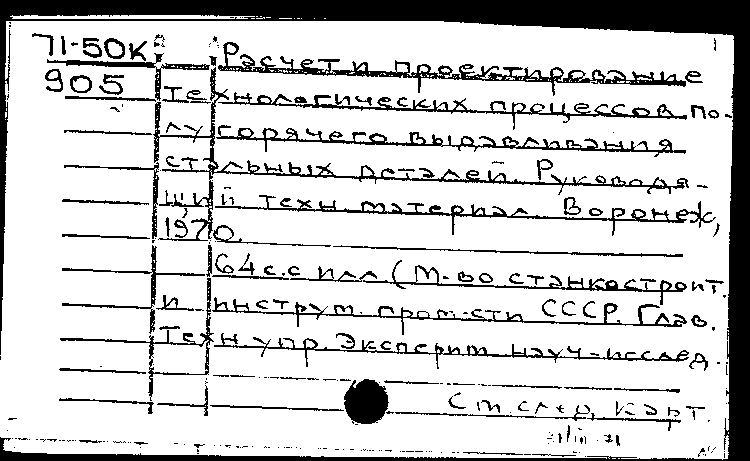 71-50К Расчет и проектирование
905 технологических процессов по-
лугорячего выдавливания
стальных деталей. Руководя-
щий техн. материал. Воронеж,
1970.
64 с. с илл (М-во станкостроит.
и инструм. пром-сти СССР. Глав.
Техн. упр. Эксперим. науч-исслед.
См след. карт.